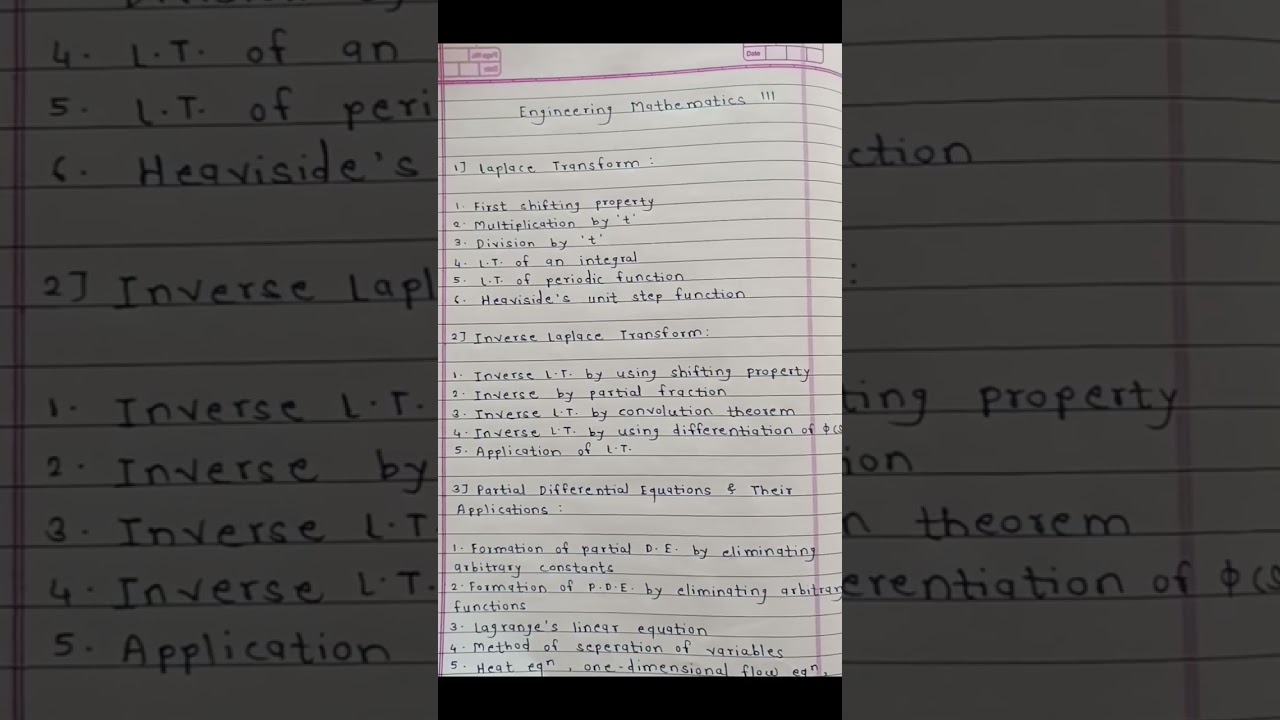 Date
Engineering Mathematics III
1] Laplace Transform :
1. First shifting property
2. Multiplication by 't'
3. Division by 't'
4. L.T. of an integral
5. L.T. of periodic function
6. Heaviside's unit step function
2] Inverse Laplace Transform :
1. Inverse L.T. by using shifting property
2. Inverse by partial fraction
3. Inverse L.T. by convolution theorem
4. Inverse L.T. by using differentiation of ϕ(s
5. Application of L.T.
3] Partial Differential Equations & Their
Applications :
1. Formation of partial D.E. by eliminating
arbitrary constants
2. Formation of P.D.E. by eliminating arbitrary
functions
3. Lagrange's linear equation
4. Method of seperation of variables
5. Heat eqⁿ, one-dimensional flow eqⁿ,
4. L.T. of an
5. L.T. of peri
6. Heaviside's
ction
2] Inverse Lapl
:
1. Inverse L.T.
ting property
2. Inverse by
ion
3. Inverse L.T
n theorem
4. Inverse L.T.
erentiation of ϕ(s
5. Application